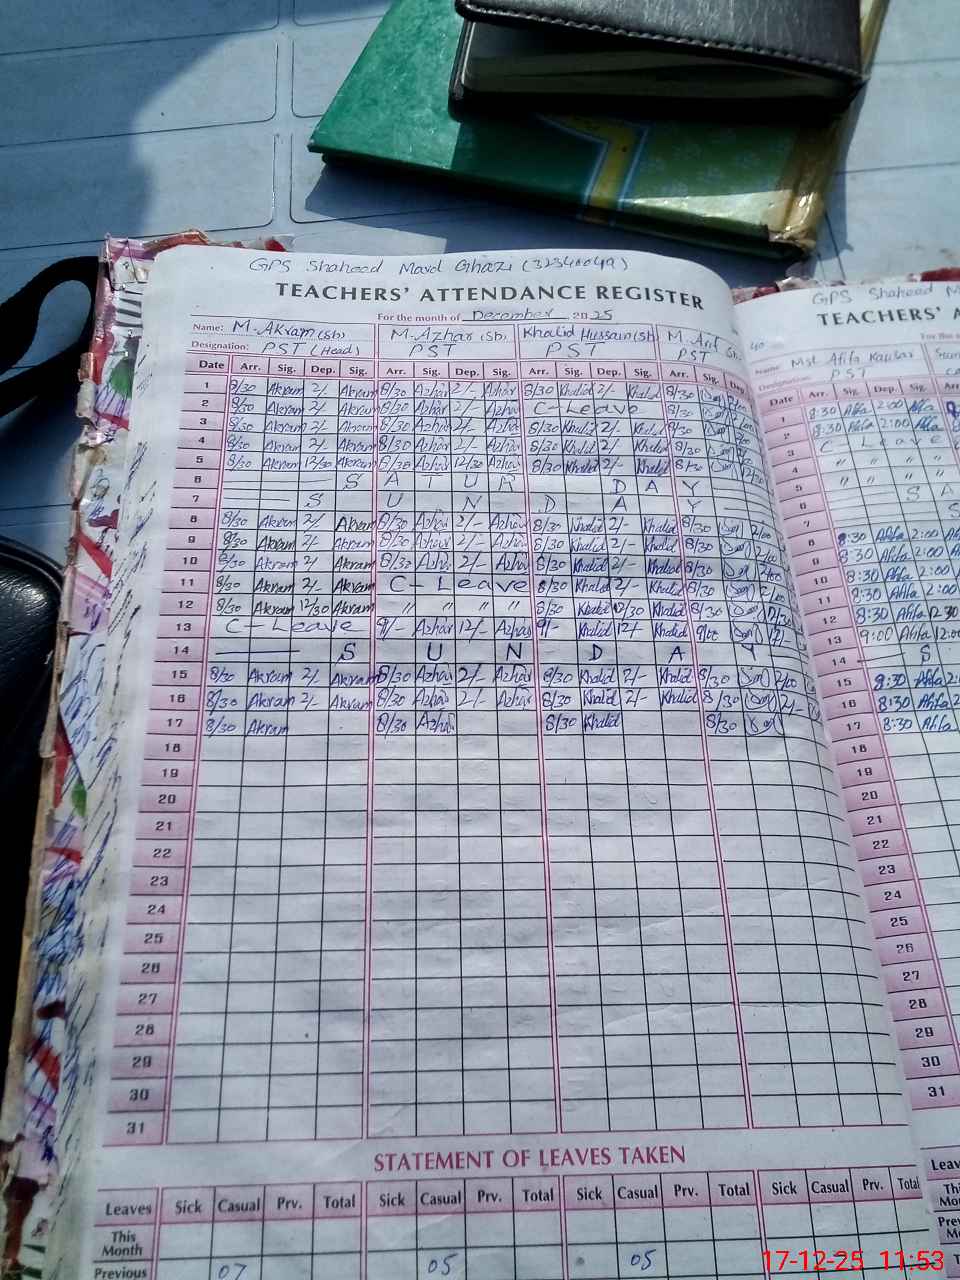 GPS Shaheed Mavd Ghazi (32340049)
TEACHERS' ATTENDANCE REGISTER
For the month of December 2025
Name: M. Akram (sb) M. Azhar (sb) Khalid Hussain (sb) M. Arif
Designation: PST (Head) PST PST PST
Date Arr. Sig. Dep. Sig. Arr. Sig. Dep. Sig. Arr. Sig. Dep. Sig. Arr. Sig. Dep
1 8/30 Akram 2/- Akram 8/30 Azhar 2/- Azhar 8/30 Khalid 2/- Khalid 8/30 2/00
2 8/30 Akram 2/- Akram 8/30 Azhar 2/- Azhar C-Leave 8/30
3 8/30 Akram 2/- Akram 8/30 Azhar 2/- Azhar 8/30 Khalid 2/- Khalid 8/30
4 8/30 Akram 2/- Akram 8/30 Azhar 2/- Azhar 8/30 Khalid 2/- Khalid 8/30
5 8/30 Akram 12/30 Akram 8/30 Azhar 12/30 Azhar 8/30 Khalid 2/- Khalid 8/30
6 S A T U R D A Y
7 S U N D A Y
8 8/30 Akram 2/- Akram 8/30 Azhar 2/- Azhar 8/30 Khalid 2/- Khalid 8/30 2/00
9 8/30 Akram 2/- Akram 8/30 Azhar 2/- Azhar 8/30 Khalid 2/- Khalid 8/30 2/00
10 8/30 Akram 2/- Akram 8/30 Azhar 2/- Azhar 8/30 Khalid 2/- Khalid 8/30 2/00
11 8/30 Akram 2/- Akram C-Leave 8/30 Khalid 2/- Khalid 8/30 2/00
12 8/30 Akram 12/30 Akram " " " " 8/30 Khalid 12/30 Khalid 8/30 12/30
13 C-Leave 9/- Azhar 12/- Azhar 9/- Khalid 12/- Khalid 9/00
14 S U N D A Y
15 8/30 Akram 2/- Akram 8/30 Azhar 2/- Azhar 8/30 Khalid 2/- Khalid 8/30 2/00
16 8/30 Akram 2/- Akram 8/30 Azhar 2/- Azhar 8/30 Khalid 2/- Khalid 8/30 2/-
17 8/30 Akram 8/30 Azhar 8/30 Khalid 8/30
18
19
20
21
22
23
24
25
26
27
28
29
30
31
STATEMENT OF LEAVES TAKEN
Leaves Sick Casual Prv. Total Sick Casual Prv. Total Sick Casual Prv. Total Sick Casual Prv. Total
This Month
Previous 07 05 05
GPS Shaheed
TEACHERS' A
Name Mst Afifa Kausar
Designation: PST
Date Arr. Sig. Dep. Sig. Arr.
1 8:30 Afifa 2:00 Afifa
2 8:30 Afifa 2:00 Afifa
3 C Leave
4 " " " "
5 " " " "
6 S A
7 S
8 8:30 Afifa 2:00 Afifa
9 8:30 Afifa 2:00
10 8:30 Afifa 2:00
11 8:30 Afifa 2:00
12 8:30 Afifa 12:30
13 9:00 Afifa 12:00
14 S
15 8:30 Afifa 2:00
16 8:30 Afifa 2:00
17 8:30 Afifa
18
19
20
21
22
23
24
25
26
27
28
29
30
31
17-12-25 11:53